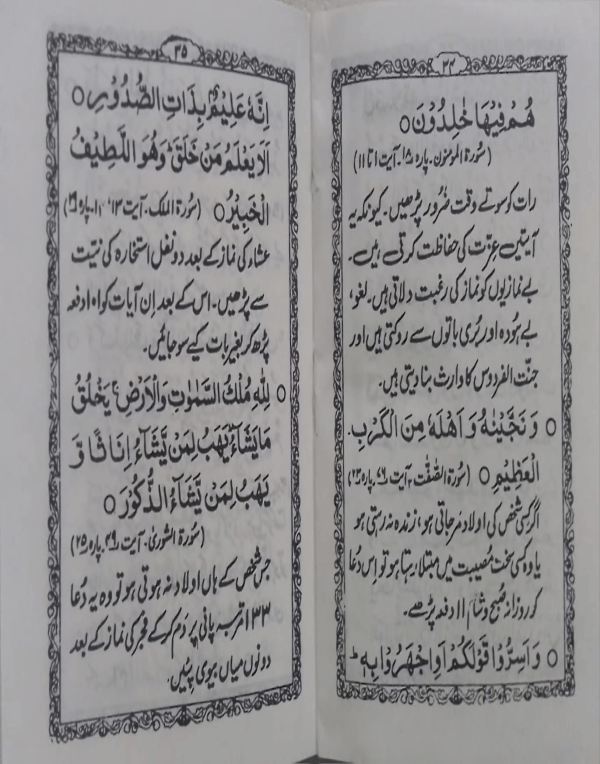 ۳۴
هُمْ فِيْهَا خٰلِدُوْنَ ○
(سُورۃ المؤمنون۔ پارہ ۱۸۔ آیت ۱ تا ۱۱)
رات کو سوتے وقت ضرور پڑھیں۔ کیونکہ یہ
آیتیں عزت کی حفاظت کرتی ہیں۔
بے نمازیوں کو نماز کی رغبت دلاتی ہیں۔ لغو،
بے ہودہ اور بُری باتوں سے روکتی ہیں اور
جنت الفردوس کا وارث بنا دیتی ہیں۔
○ وَ نَجَّيْنٰهُ وَ اَهْلَهٗ مِنَ الْكَرْبِ
الْعَظِيْمِ ○ (سُورۃ الصّٰفّٰت، آیت ۷۶، پارہ ۲۳)
اگر کسی شخص کی اولاد مر جاتی ہو، زندہ نہ رہتی ہو
یا وہ کسی سخت مصیبت میں مبتلا رہتا ہو تو اِس دُعا
کو روزانہ صبح و شام ۱۱ دفعہ پڑھے۔
○ وَ اَسِرُّوْا قَوْلَكُمْ اَوِ اجْهَرُوْا بِهٖ ؕ
۳۵
اِنَّهٗ عَلِيْمٌۢ بِذَاتِ الصُّدُوْرِ ○
اَلَا يَعْلَمُ مَنْ خَلَقَ ؕ وَهُوَ اللَّطِيْفُ
الْخَبِيْرُ ○ (سُورۃ الملک۔ آیت ۱۳، ۱۴۔ پارہ ۲۹)
عشاء کی نماز کے بعد دو نفل استخارہ کی نیّت
سے پڑھیں۔ اس کے بعد اِن آیات کو ۱۰۱ دفعہ
پڑھ کر بغیر بات کیے سو جائیں۔
○ لِلّٰهِ مُلْكُ السَّمٰوٰتِ وَالْاَرْضِ ؕ يَخْلُقُ
مَا يَشَآءُ ؕ يَهَبُ لِمَنْ يَّشَآءُ اِنَاثًا وَّ
يَهَبُ لِمَنْ يَّشَآءُ الذُّكُوْرَ ○
(سُورۃ الشورٰی۔ آیت ۴۹۔ پارہ ۲۵)
جس شخص کے ہاں اولاد نہ ہوتی ہو تو وہ یہ دُعا
۱۳۳ مرتبہ پانی پر دَم کر کے فجر کی نماز کے بعد
دونوں میاں بیوی پئیں۔